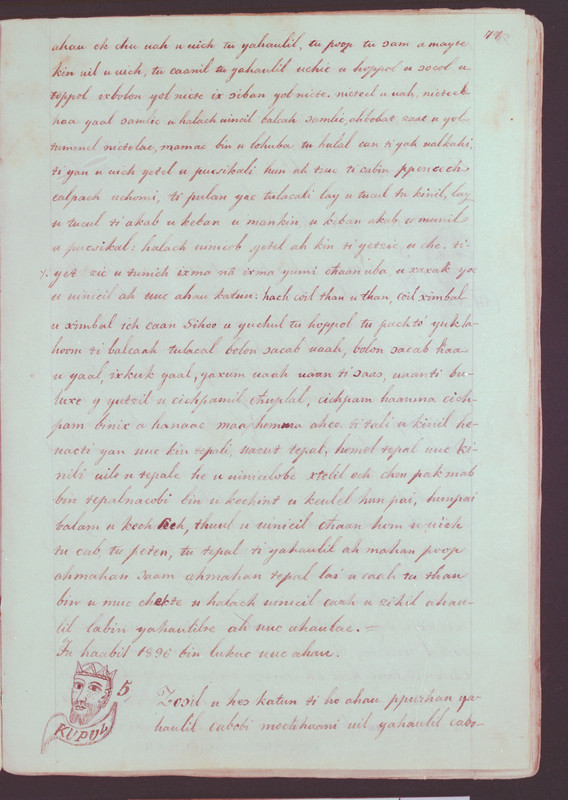 77
ahau ek chu uah u uich tu yahaulil, tu poop tu sam a mayee
kin uil u uich, tu caanil tu yahaulil uchic u hoppol u socol u
toppol ix bolon yol nicte ix siban yol nicte. nicteel u uah, nicteel
haa yaal samlic u halach uinicil balcah samlic, ahbobat saat u yol
tumenel nictelae, mamac bin u lohuba tu halal can ti yah ualkahi,
ti yan u uich yetel u pucsikali hun ah tzuc ti cabin ppencech
calpach uchomi, ti pulan yoc tulacali lay u tucul tu kinil, lay
u tucul ti akab u keban u mankin u keban akab u munil
u pucsikal: halach uinicob yetel ah kin ti yetzic u che. ti
yet zic u tunich ixma nã ixma yumi chaan uba u xaxak yoc
u uinicil ah uuc ahau katun: hach coil than u than, coil ximbal
u ximbal ich caan Sihoo u yuchul tu hoppol tu puchtó yukla-
hoom ti balcaah tulacal bolon sacab uaah, bolon sacab haa
u yaal, ixkuk yaal, yaxum uaah uaan ti saas, uaan ti bu-
luxe y yutzil u cichpamil chuplal, cichpam haanma cich-
pam binix a hanaac maa homma ahce. ti tali u kinil he-
uacti yan uuc kin tepali, uacut tepal, homol tepal uuc ki-
nili uils u tepale he u uinicilobe xtolil och chen pak mab
bin tepalnacobi bin u kechint u keulel hun pai, hunpai
balam u kech keh, thuul u uinicil chaan hom u uich
tu cab, tu peten, tu tepal ti yahaulil ah mahan poop
ahmahan saam ahmahan tepal lai u cach tu than
bin u nuc chekte u halach uinicil caah u zihil ahau-
lil labin yahaulilre ah uuc ahaulae. =
Tu haabil 1896 bin lukuc uuc ahau.
5
KUPUL
Zosil u hes katun ti ho ahau ppizhan ya-
haulil cabobi mochhaomi uil yahaulil cabo-